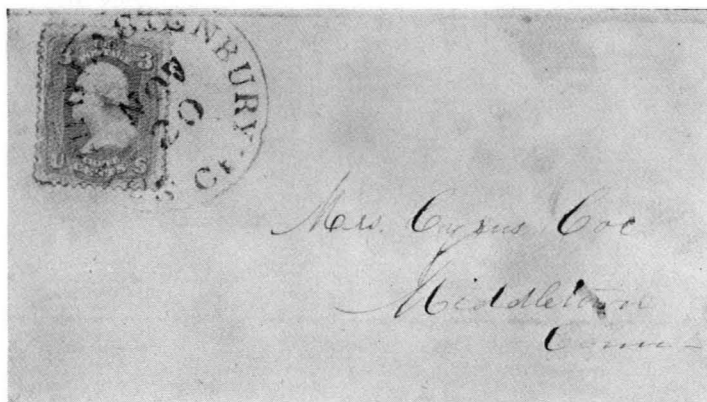 3
STENBURY
NOV
20
CT.
U S
Mrs. Cyrus Coe
Middletown
Conn